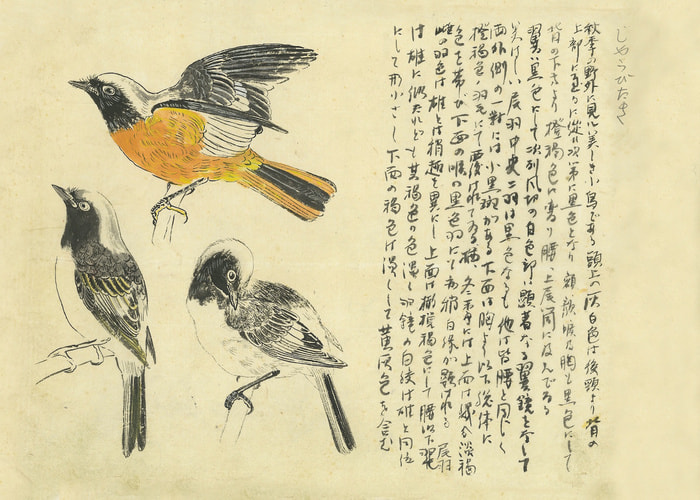 じやうびたき
秋季の野外に見ル美しき小鳥である 頭上の灰白色は後頭より背の
上部に至るに従ひ次第に黒色となり 額顔喉及胸も黒色にして
背の下方より橙褐色に寄り腰、上尾筒に及んでゐる
翼ハ黒色にして次列風切の白色部ハ顕著なる翼鏡をなして
尾羽中央二羽は黒色なるも他は皆腰と同じく
両外側の一対には小黒斑がある 下面は胸より以下総体に
橙褐色の羽毛にて覆はれてゐる 冬季には上面は淡褐
色を帯び下面の喉の黒色羽にも白縁が顕はれる 尾羽
雌の羽色は雄とは稍趣を異にし上面は橄欖褐色にして腰以下
は雄に似たれども其褐色の色淡し羽鏡の白紋は雄と同位
にして形小さし 下面の褐色は淡くして黄灰色を含む